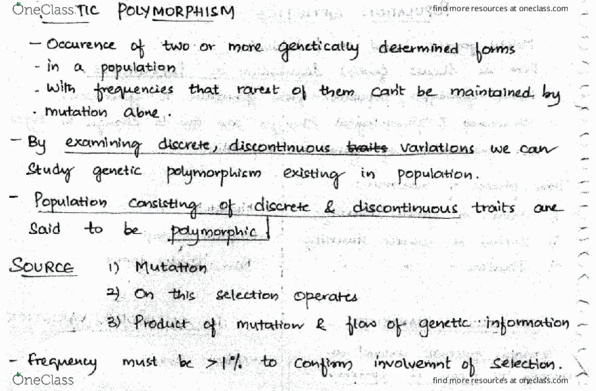 OneClass TIC POLYMORPHISM find more resources at oneclass.com
- Occurence of two or more genetically determined forms
- in a population
- With frequencies that rarest of them can't be maintained by
. mutation alone.
- By examining discrete, discontinuous traits variations we can
study genetic polymorphism existing in population.
- Population consisting of discrete & discontinuous traits are
said to be polymorphic
SOURCE 1) Mutation
2) On this selection operates
3) Product of mutation & flow of genetic information
- frequency must be >1% to confirm involvemnt of selection.
OneClass find more resources at oneclass.com